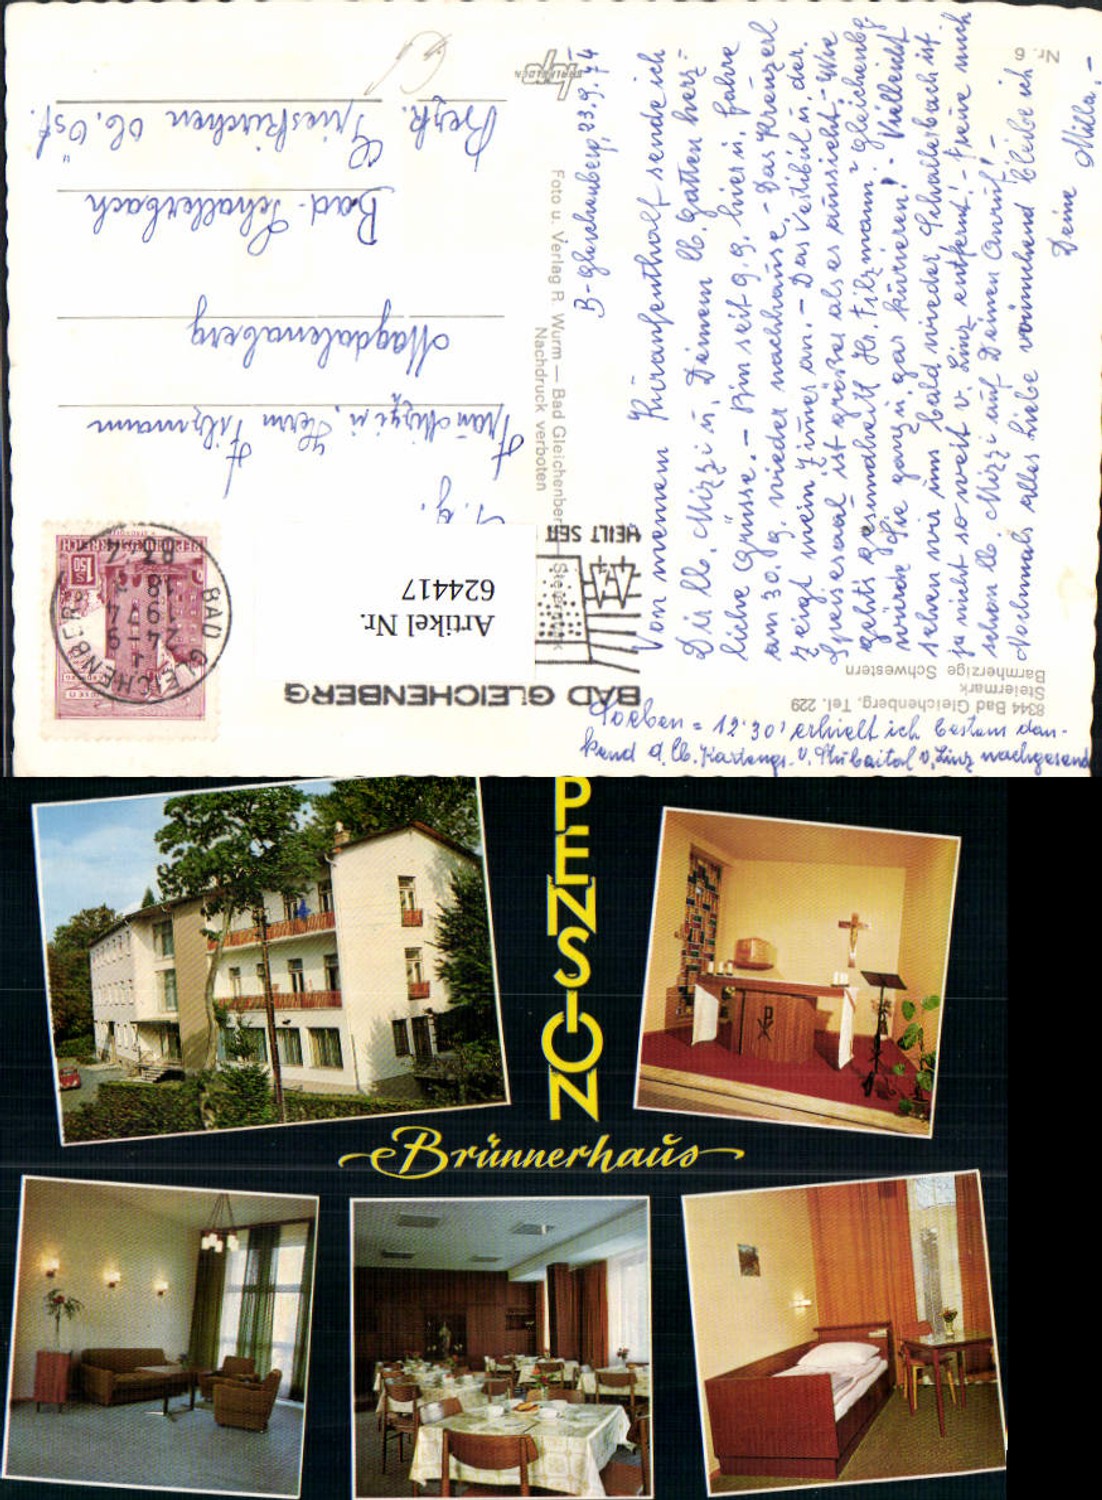 Nr. 6
B-Gleichenberg, 23.9.74
Von meinem Kuraufenthalt sende ich
Dir lb. Mizzi u. Deinem lb. Gatten herz-
liche Grüsse. - Bin seit 9.9. hier u. fahre
am 30.9. wieder nachhause. - Das Kreuzerl
zeigt mein Zimmer an. - Das Vestibül u. der
Speisesaal ist größer als es aussieht. - Wie
geht's gesundheitl. Hr. Filzmann? Gleichenbg
würde Sie ganz u. gar kurieren! - Vielleicht
sehen wir uns bald wieder, Schallerbach ist
ja nicht so weit v. Linz entfernt! - Freue mich
schon lb. Mizzi auf Deinen Anruf! -
Nochmals alles Liebe verbleibe ich
Deine Milla. -
Soeben = 12.30' erhielt ich bestens dan-
kend d. lb. v. Stubaital v. Linz nachgesand
8344 Bad Gleichenberg, Tel. 229
Steiermark
Barmherzige Schwestern
Foto u. Verlag R. Wurm — Bad Gleichenberg
Nachdruck verboten
BAD GLEICHENBERG
HEILT SEIT
BAD GLEICHENBERG
24-9
1974
18
8344
1.50
Artikel Nr.
624417
Frau Mizzi u. Herrn Filzmann
Magdalenaberg
Bad-Schallerbach
Bezk. Grieskirchen Ob. Öst.
PENSION
Brünnerhaus